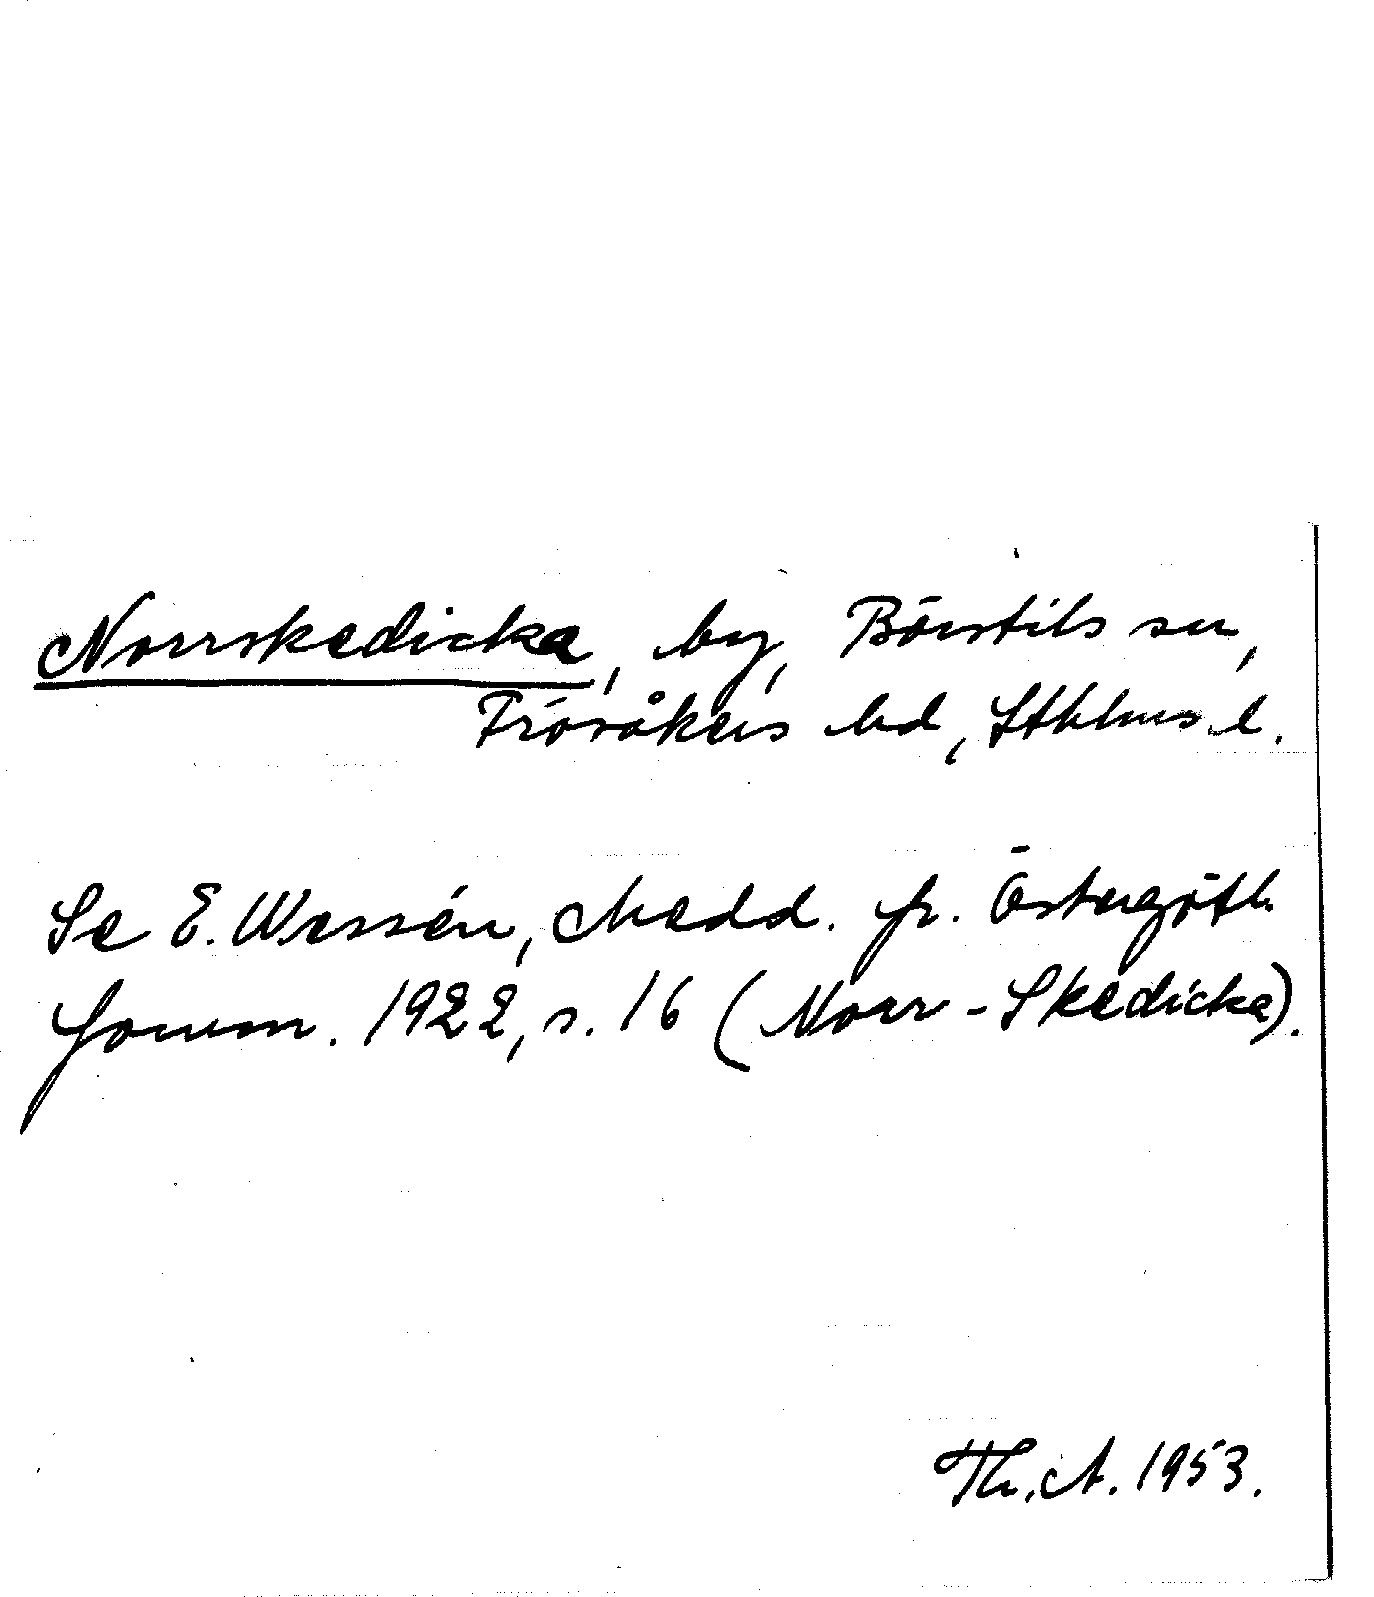 Norrskedicka, by, Börstils sn,
Frösåkers hd, Sthlms l.
Se E. Wessén, Medd. fr. Östergötl.
fornm. 1922, s. 16 (Norr-Skedicka).
Th. A. 1953.